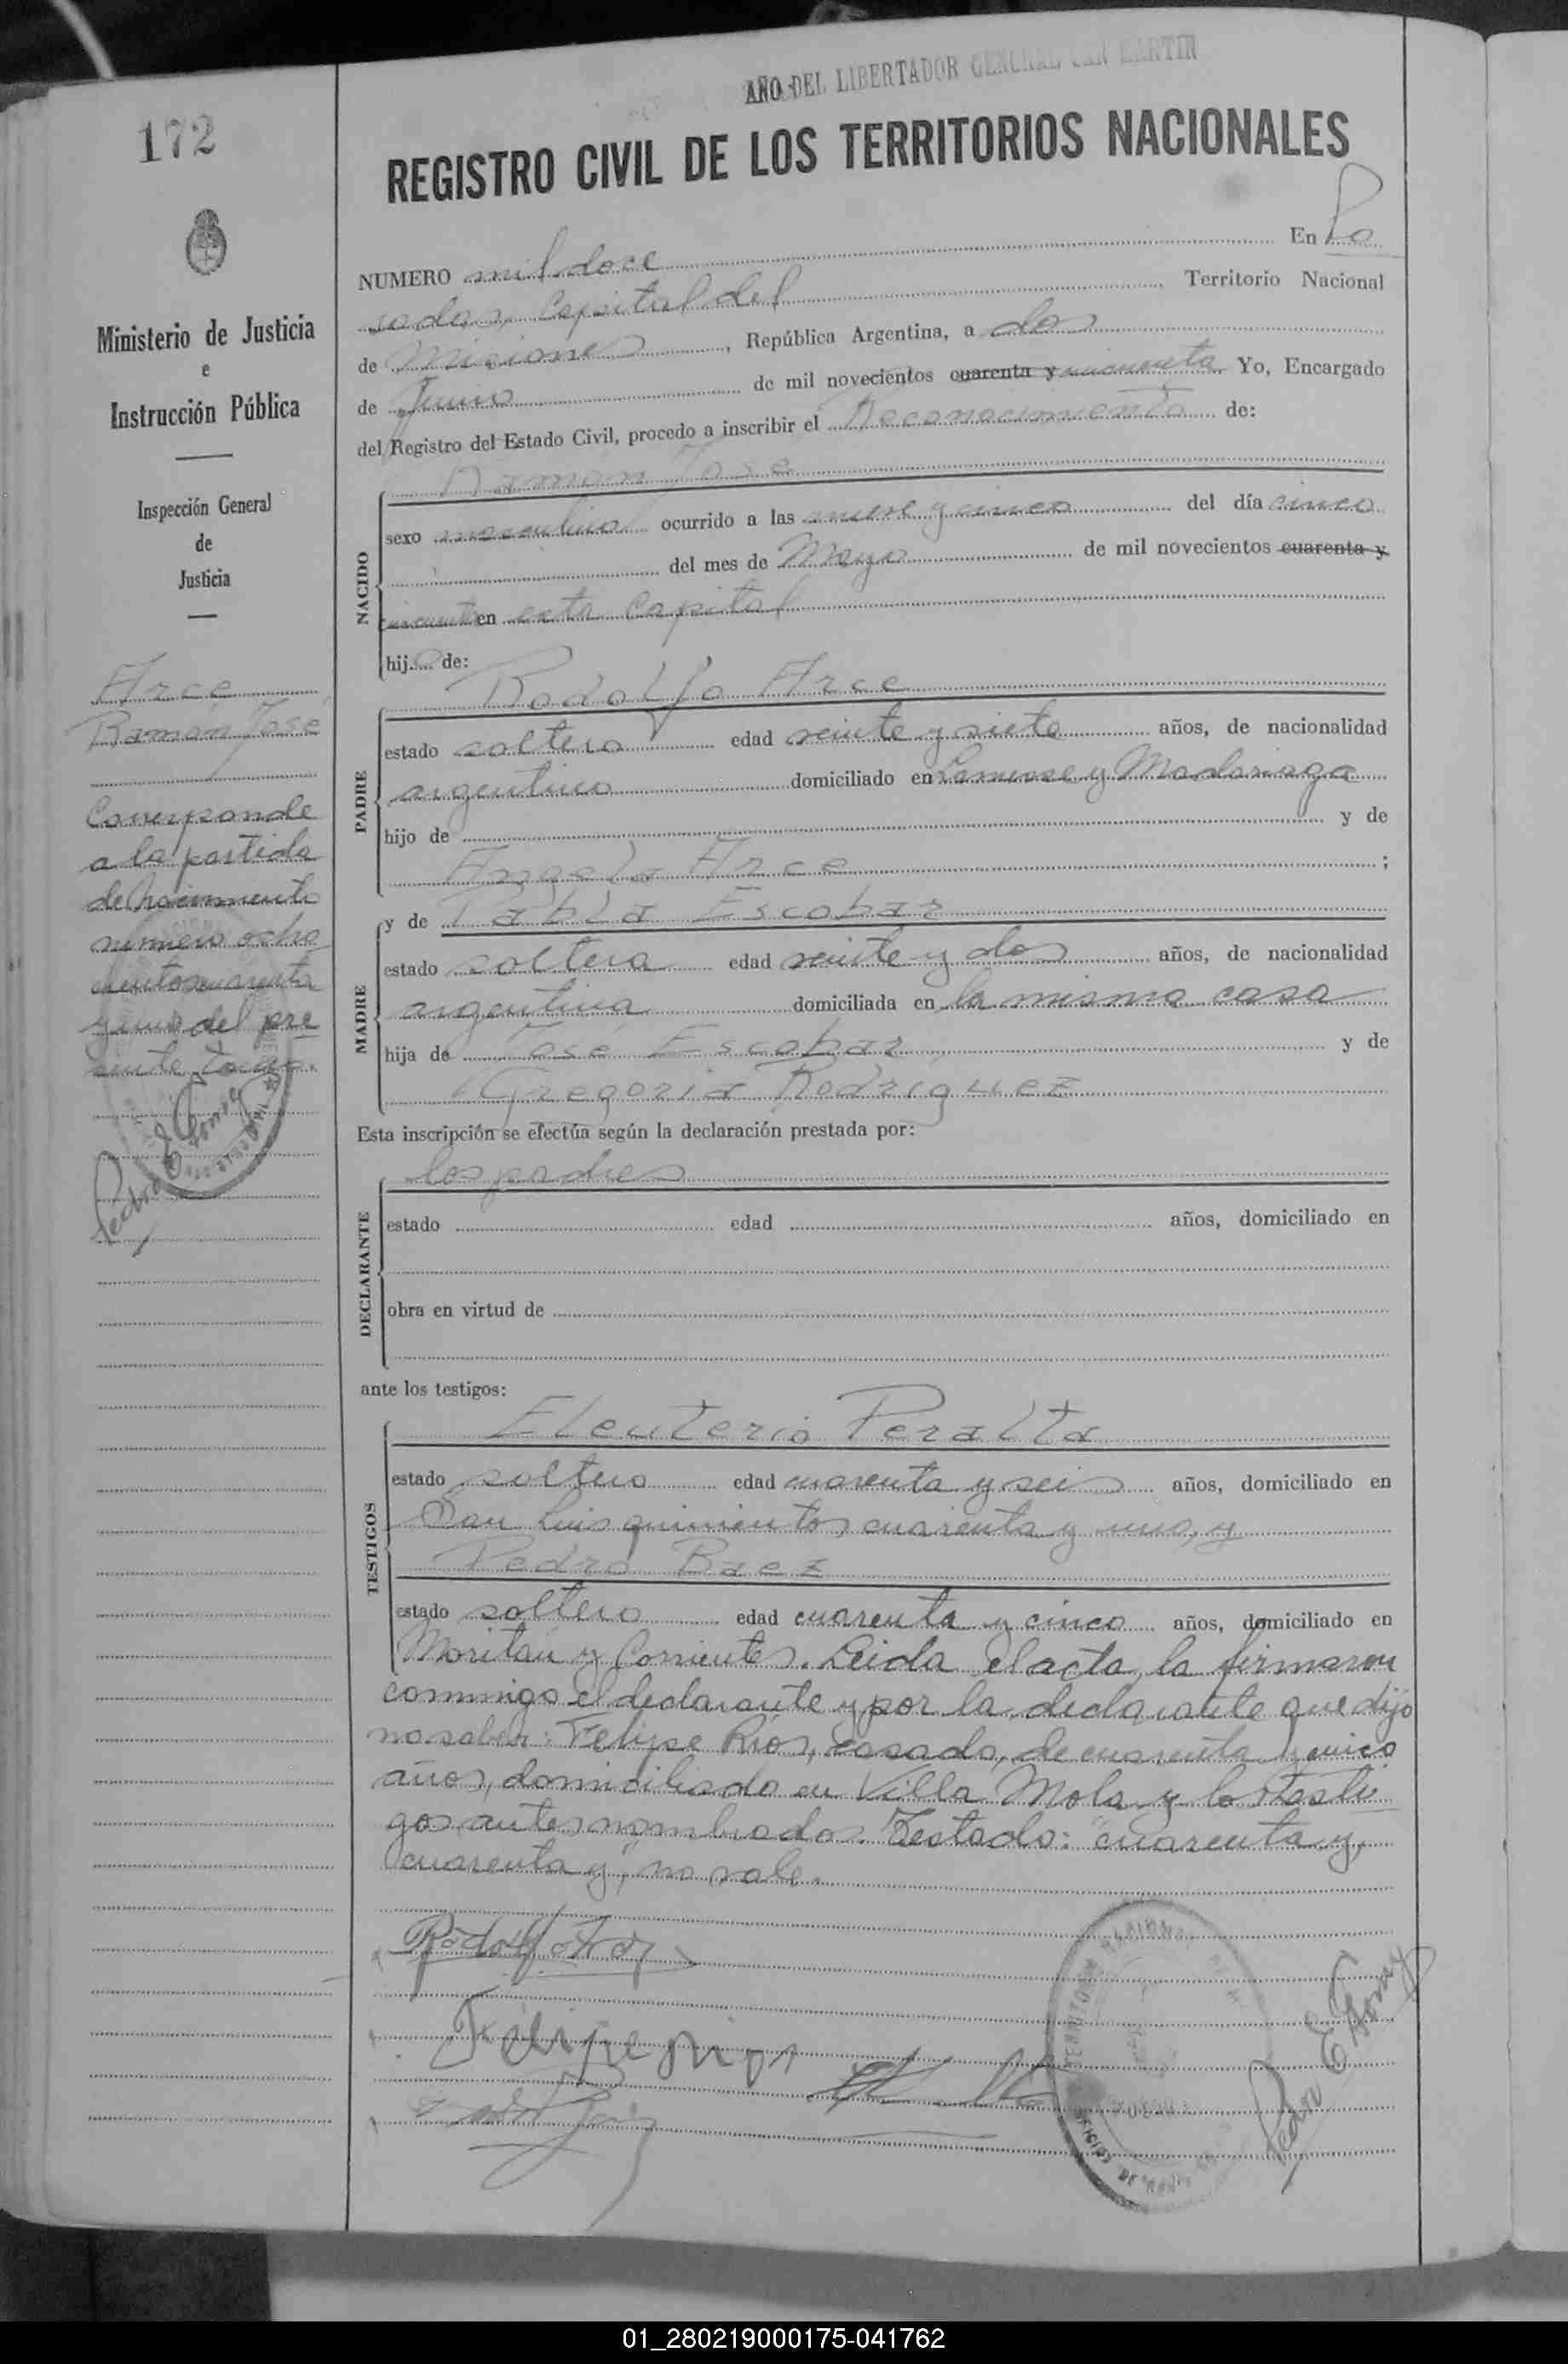 AÑO DEL LIBERTADOR GENERAL SAN MARTIN
172
REGISTRO CIVIL DE LOS TERRITORIOS NACIONALES
Ministerio de Justicia
e
Instrucción Pública
Inspección General
de
Justicia
Arce
Ramón José
Corresponde
a la partida
de Nacimiento
número ocho
cientos cuarenta
y uno del pre
sente tomo.
Pedro E Gomez
NUMERO mil doce En Po
sadas, Capital del Territorio Nacional
de Misiones, República Argentina, a dos
de Junio de mil novecientos cuarenta y cincuenta Yo, Encargado
del Registro del Estado Civil, procedo a inscribir el Reconocimiento de:
Ramón José
NACIDO
sexo masculino ocurrido a las nueve y cinco del día cinco
del mes de Mayo de mil novecientos cuarenta y
cincuenta en esta Capital
hijo de:
Rodolfo Arce
PADRE
estado soltero edad veinte y siete años, de nacionalidad
argentino domiciliado en Lanusse y Madariaga
hijo de y de
Angela Arce ;
y de Pabla Escobar
MADRE
estado soltera edad veinte y dos años, de nacionalidad
argentina domiciliada en la misma casa
hija de José Escobar y de
Gregoria Rodríguez
Esta inscripción se efectúa según la declaración prestada por:
los padres
DECLARANTE
estado edad años, domiciliado en
obra en virtud de
ante los testigos:
Eleuterio Peralta
TESTIGOS
estado soltero edad cuarenta y seis años, domiciliado en
San Luis quinientos cuarenta y uno, y
Pedro Baez
estado soltero edad cuarenta y cinco años, domiciliado en
Moritán y Corrientes. Leida el acta, la firmaron
conmigo el declarante y por la declarante que dijo
no saber: Felipe Ríos, casado, de cuarenta y cinco
años, domiciliado en Villa Mola y los testi
gos antes nombrados. Testado: "cuarenta y,
cuarenta y", no vale.
Rodolfo Arce
Felipe rios
Pedro E Gomez
01_280219000175-041762